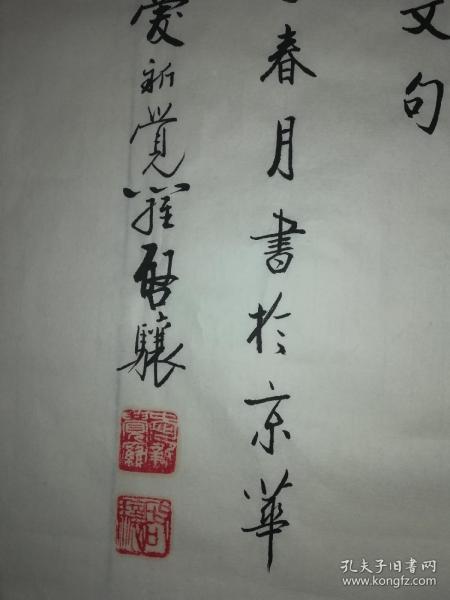 文句
春月書於京華
愛新覺羅啓驤
孔夫子旧书网
www.kongfz.com